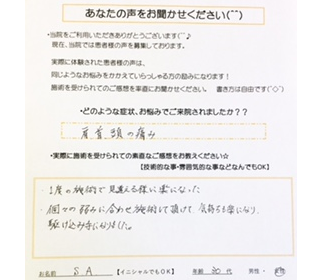 あなたの声をお聞かせください(^^)
・当院をご利用いただきありがとうございます(^^)♪
現在、当院では患者様の声を募集しております。
実際に体験された患者様の声は、
同じようなお悩みをかかえていらっしゃる方の励みになります！
施術を受けられてのご感想を率直にお聞かせください。 書き方は自由です(^◇^)
・どのような症状、お悩みでご来院されましたか？？
肩 首 頭の痛み
・実際に施術を受けられての素直なご感想をお教えください☆
【技術的な事・雰囲気的な事などなんでもOK】
・1度の施術で見違える様に楽になった
・個々の悩みに合わせ施術して頂けて、気持ちも楽になり、
駆け込み寺になりました。
お名前 S A 【イニシャルでもOK】 年齢 30代 男性・